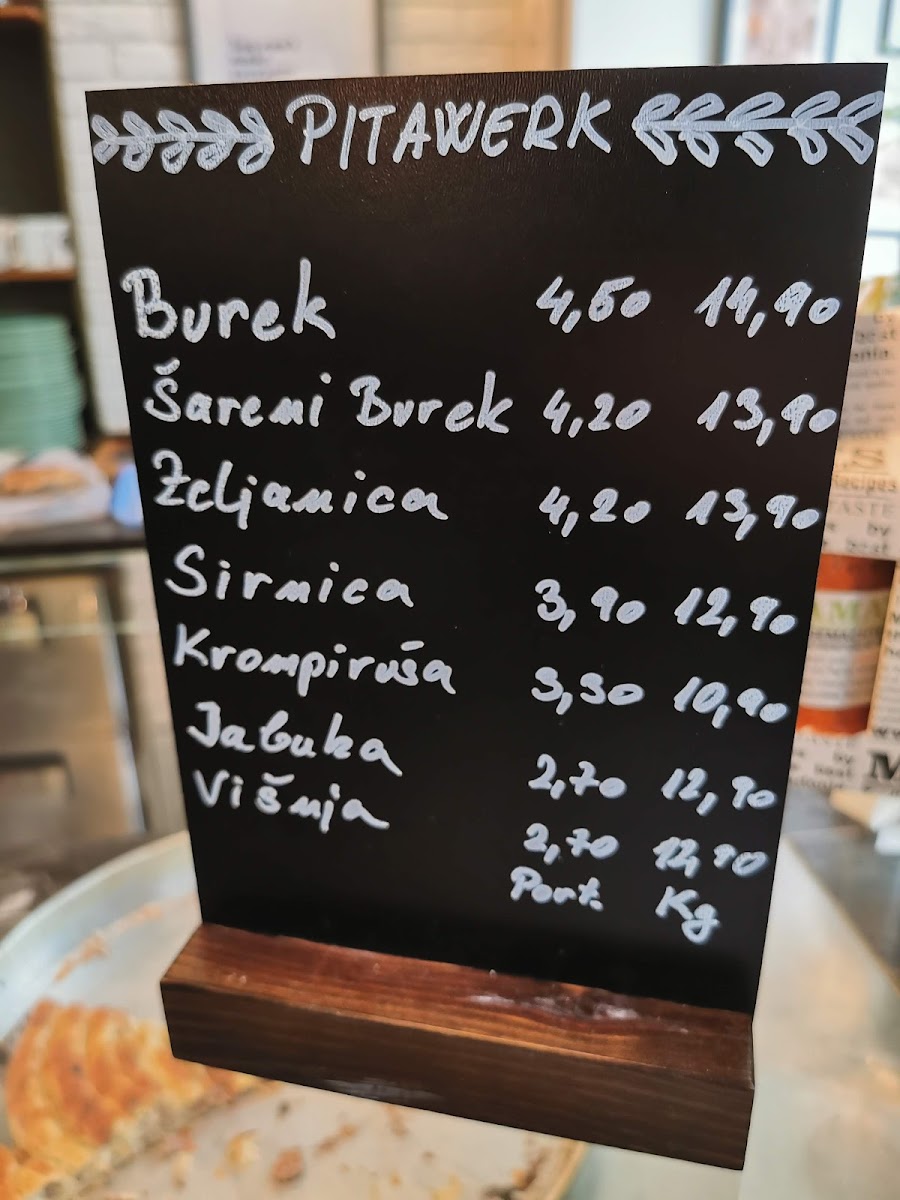 PITAWERK
Burek 4,50 14,90
Šareni Burek 4,20 13,90
Zeljanica 4,20 13,90
Sirnica 3,90 12,90
Krompiruša 3,30 10,90
Jabuka 2,70 12,90
Višnja 2,70 12,90
Port. Kg